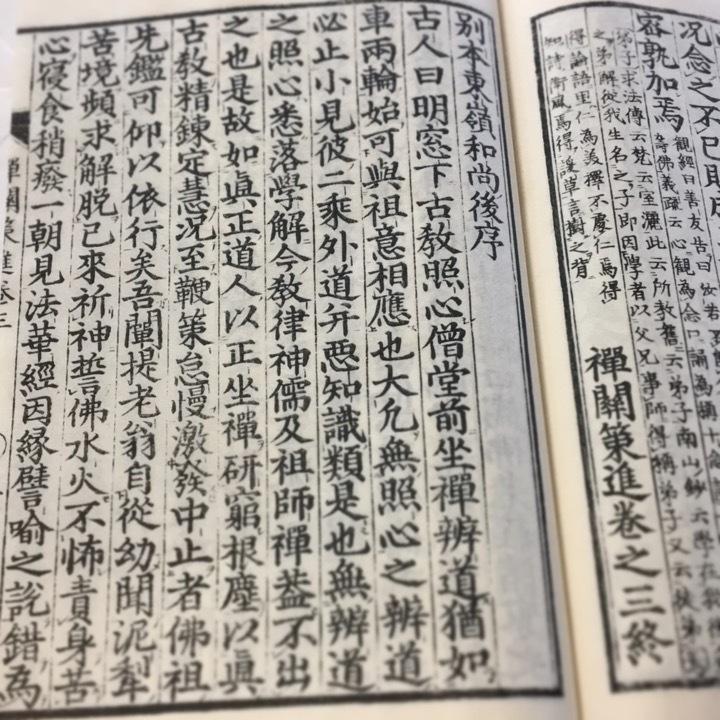 況念之不已則
密孰加焉
觀經曰善友告曰汝若
弟子求法傳云梵云室灑此云所教舊云弟子南山鈔云學在我後
之弟解從我生名之子即因學者以父兄事師得稱弟子又云徒弟
得論語里仁為美擇不處仁焉得
知詩衛風焉得諼草言樹之背
禪關策進卷之三終
別本東嶺和尚後序
古人曰明窓下古教照心僧堂前坐禪辨道猶如
車兩輪始可與祖意相應也大凡無照心之辨道
必止小見彼二乘外道并惡知識類是也無辨道
之照心悉落學解今教律神儒及祖師禪蓋不出
之也是故如眞正道人以正坐禪研窮根塵以眞
古教精鍊定慧況至鞭策怠慢激發中止者佛祖
先鑑可仰以依行矣吾闡提老翁自從幼聞泥犁
苦境頻求解脱已來祈神誓佛水火不怖責身苦
心寢食稍癈一朝見法華經因縁譬喻之說錯為
禪關策進卷三